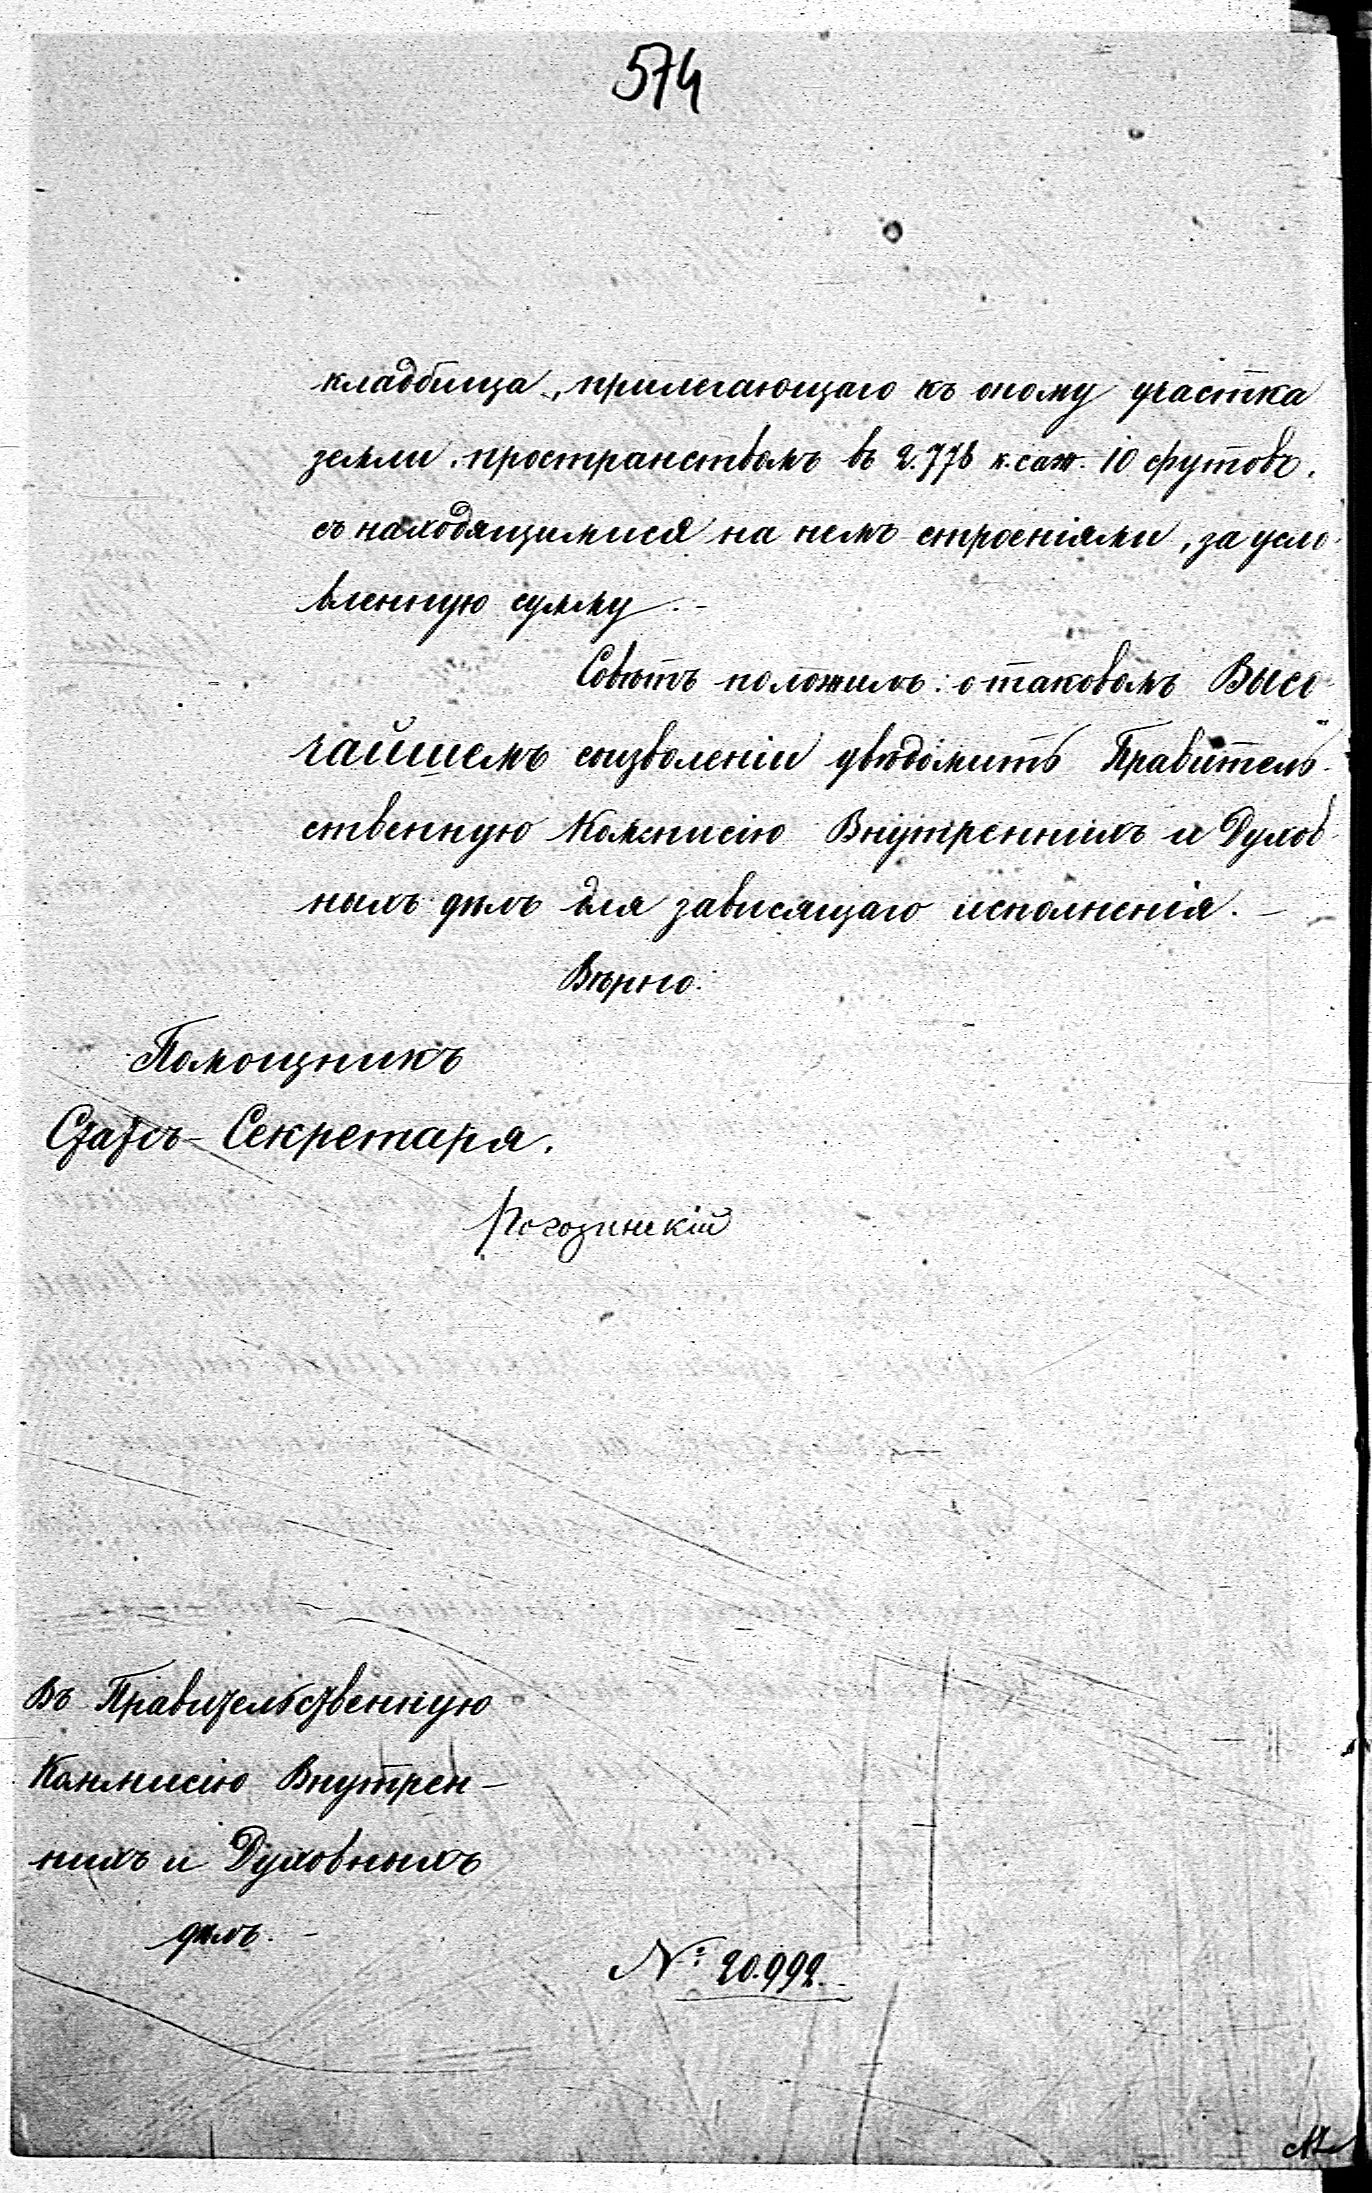 574
кладбища, прилегающаго къ оному участка
земли, пространствомъ въ 2.778 к. саж. 10 футовъ,
съ находящимися на немъ строеніями, за усло-
вленную сумму. -
Совѣтъ положилъ: о таковомъ Высо-
чайшемъ соизволеніи увѣдомить Правитель-
ственную Коммисію Внутреннихъ и Духов-
ныхъ дѣлъ для зависящаго исполненія. -
Вѣрно:
Помощникъ
Статсъ-Секретаря.
Рогозинскій
Въ Правительственную
Коммисію Внутрен-
нихъ и Духовныхъ
дѣлъ. -
№ 20.992.